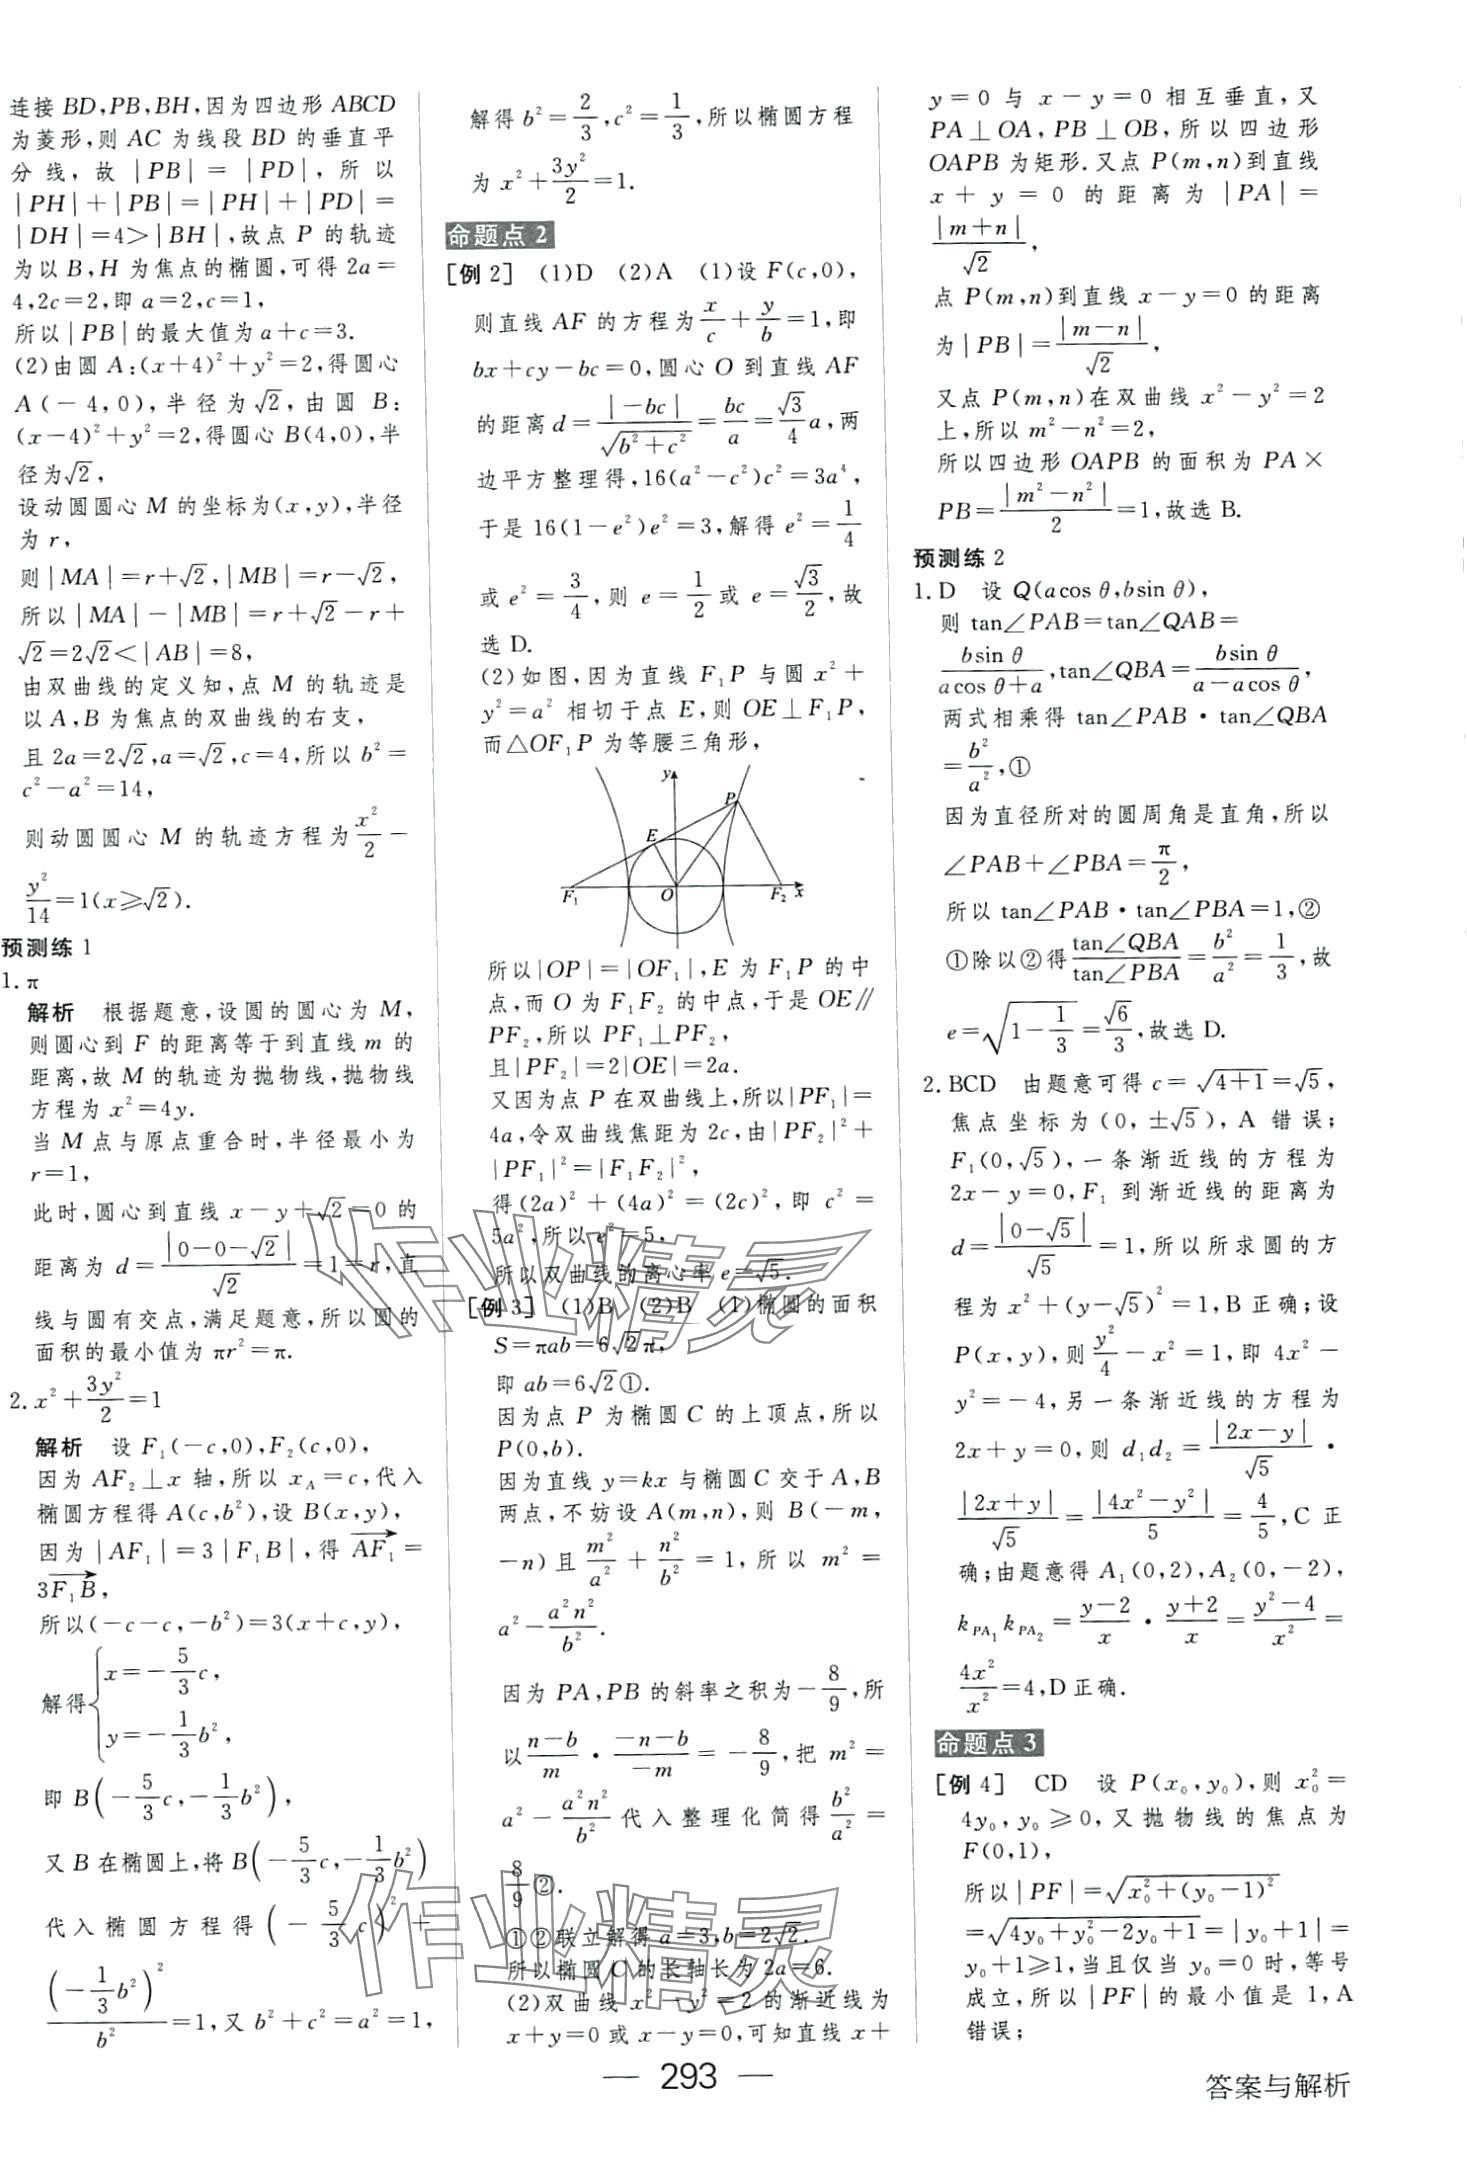 连接 BD,PB,BH,因为四边形 ABCD
为菱形,则 AC 为线段 BD 的垂直平
分线,故 |PB| = |PD|,所以
|PH|+|PB|=|PH|+|PD|=
|DH|=4>|BH|,故点 P 的轨迹
为以 B,H 为焦点的椭圆,可得 2a=
4,2c=2,即 a=2,c=1,
所以|PB|的最大值为 a+c=3.
(2)由圆 A:(x+4)²+y²=2,得圆心
A(-4,0),半径为√2,由圆 B:
(x-4)²+y²=2,得圆心 B(4,0),半
径为√2,
设动圆圆心 M 的坐标为(x,y),半径
为 r,
则|MA|=r+√2,|MB|=r-√2,
所以|MA|-|MB|=r+√2-r+
√2=2√2<|AB|=8,
由双曲线的定义知,点 M 的轨迹是
以 A,B 为焦点的双曲线的右支,
且 2a=2√2,a=√2,c=4,所以 b²=
c²-a²=14,
则动圆圆心 M 的轨迹方程为x²/2-
y²/14=1(x≥√2).
预测练 1
1. π
解析 根据题意,设圆的圆心为 M,
则圆心到 F 的距离等于到直线 m 的
距离,故 M 的轨迹为抛物线,抛物线
方程为 x²=4y.
当 M 点与原点重合时,半径最小为
r=1,
此时,圆心到直线 x-y+√2=0 的
距离为 d=|0-0-√2|/√2=1=r,直
线与圆有交点,满足题意,所以圆的
面积的最小值为 πr²=π.
2. x²+3y²/2=1
解析 设 F₁(-c,0),F₂(c,0),
因为 AF₂⊥x 轴,所以 x_A=c,代入
椭圆方程得 A(c,b²),设 B(x,y),
因为|AF₁|=3|F₁B|,得 AF₁→=
3F₁B→,
所以(-c-c,-b²)=3(x+c,y),
解得{x=-5/3c,
y=-1/3b²,
即 B(-5/3c,-1/3b²),
又 B 在椭圆上,将 B(-5/3c,-1/3b²)
代入椭圆方程得(-5/3c)²+
(-1/3b²)²/b²=1,又 b²+c²=a²=1,
解得 b²=2/3,c²=1/3,所以椭圆方程
为 x²+3y²/2=1.
命题点 2
[例 2] (1)D (2)A (1)设 F(c,0),
则直线 AF 的方程为x/c+y/b=1,即
bx+cy-bc=0,圆心 O 到直线 AF
的距离 d=|-bc|/√(b²+c²)=bc/a=√3/4a,两
边平方整理得,16(a²-c²)c²=3a⁴,
于是 16(1-e²)e²=3,解得 e²=1/4
或 e²=3/4,则 e=1/2或 e=√3/2,故
选 D.
(2)如图,因为直线 F₁P 与圆 x²+
y²=a² 相切于点 E,则 OE⊥F₁P,
而△OF₁P 为等腰三角形,
y
P
E
F₁
O
F₂
x
所以|OP|=|OF₁|,E 为 F₁P 的中
点,而 O 为 F₁F₂ 的中点,于是 OE∥
PF₂,所以 PF₁⊥PF₂,
且|PF₂|=2|OE|=2a.
又因为点 P 在双曲线上,所以|PF₁|=
4a,令双曲线焦距为 2c,由|PF₂|²+
|PF₁|²=|F₁F₂|²,
得(2a)²+(4a)²=(2c)²,即 c²=
5a²,所以 e²=5,
所以双曲线的离心率 e=√5.
[例 3] (1)B (2)B (1)椭圆的面积
S=πab=6√2π,
即 ab=6√2①.
因为点 P 为椭圆 C 的上顶点,所以
P(0,b).
因为直线 y=kx 与椭圆 C 交于 A,B
两点,不妨设 A(m,n),则 B(-m,
-n)且m²/a²+n²/b²=1,所以 m²=
a²-a²n²/b².
因为 PA,PB 的斜率之积为-8/9,所
以(n-b)/m·(-n-b)/(-m)=-8/9,把 m²=
a²-a²n²/b²代入整理化简得b²/a²=
8/9②.
①②联立解得 a=3,b=2√2.
所以椭圆 C 的长轴长为 2a=6.
(2)双曲线 x²-y²=2 的渐近线为
x+y=0 或 x-y=0,可知直线 x+
y=0 与 x-y=0 相互垂直,又
PA⊥OA,PB⊥OB,所以四边形
OAPB 为矩形.又点 P(m,n)到直线
x+y=0 的距离为|PA|=
|m+n|/√2,
点 P(m,n)到直线 x-y=0 的距离
为|PB|=|m-n|/√2,
又点 P(m,n)在双曲线 x²-y²=2
上,所以 m²-n²=2,
所以四边形 OAPB 的面积为 PA×
PB=|m²-n²|/2=1,故选 B.
预测练 2
1. D 设 Q(acos θ,bsin θ),
则 tan∠PAB=tan∠QAB=
bsin θ/(acos θ+a),tan∠QBA=bsin θ/(a-acos θ),
两式相乘得 tan∠PAB·tan∠QBA
=b²/a²,①
因为直径所对的圆周角是直角,所以
∠PAB+∠PBA=π/2,
所以 tan∠PAB·tan∠PBA=1,②
①除以②得tan∠QBA/tan∠PBA=b²/a²=1/3,故
e=√(1-1/3)=√6/3,故选 D.
2. BCD 由题意可得 c=√(4+1)=√5,
焦点坐标为(0,±√5),A 错误;
F₁(0,√5),一条渐近线的方程为
2x-y=0,F₁ 到渐近线的距离为
d=|0-√5|/√5=1,所以所求圆的方
程为 x²+(y-√5)²=1,B 正确;设
P(x,y),则y²/4-x²=1,即 4x²-
y²=-4,另一条渐近线的方程为
2x+y=0,则 d₁d₂=|2x-y|/√5·
|2x+y|/√5=|4x²-y²|/5=4/5,C 正
确;由题意得 A₁(0,2),A₂(0,-2),
k_PA₁k_PA₂=(y-2)/x·(y+2)/x=(y²-4)/x²=
4x²/x²=4,D 正确.
命题点 3
[例 4] CD 设 P(x₀,y₀),则 x₀²=
4y₀,y₀≥0,又抛物线的焦点为
F(0,1),
所以|PF|=√(x₀²+(y₀-1)²)
=√(4y₀+y₀²-2y₀+1)=|y₀+1|=
y₀+1≥1,当且仅当 y₀=0 时,等号
成立,所以|PF|的最小值是 1,A
错误;
作业精灵
作业精灵
— 293 —
答案与解析